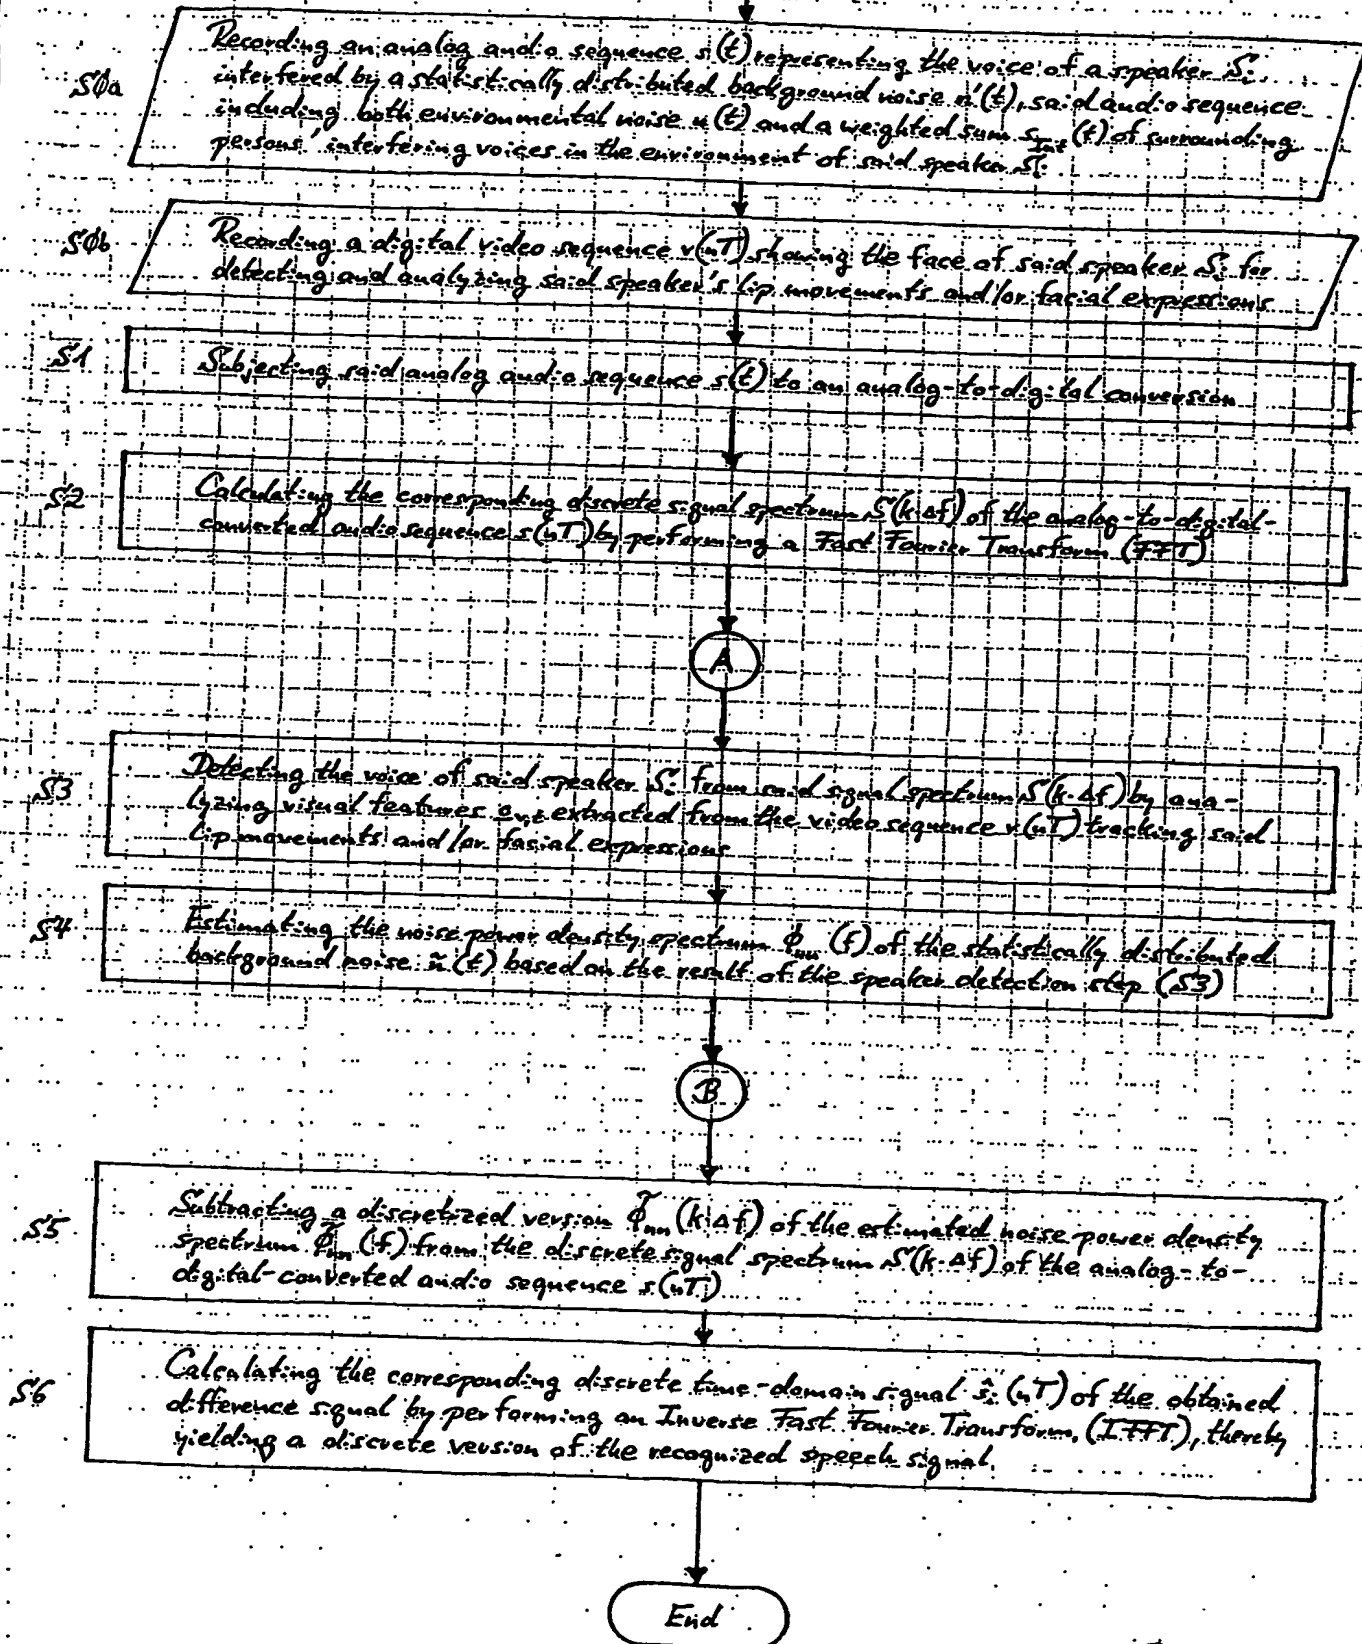 SØa
Recording an analog audio sequence s(t) representing the voice of a speaker Sᵢ
interfered by a statistically distributed background noise n'(t), said audio sequence
including both environmental noise n(t) and a weighted sum s_Int(t) of surrounding
persons' interfering voices in the environment of said speaker Sᵢ
SØb
Recording a digital video sequence v(nT) showing the face of said speaker Sᵢ for
detecting and analyzing said speaker's lip movements and/or facial expressions
S1
Subjecting said analog audio sequence s(t) to an analog-to-digital conversion
S2
Calculating the corresponding discrete signal spectrum S(k·Δf) of the analog-to-digital-
converted audio sequence s(nT) by performing a Fast Fourier Transform (FFT)
A
S3
Detecting the voice of said speaker Sᵢ from said signal spectrum S(k·Δf) by ana-
lyzing visual features o_v,t extracted from the video sequence v(nT) tracking said
lip movements and/or facial expressions
S4
Estimating the noise power density spectrum Φ_nn(f) of the statistically distributed
background noise ñ(t) based on the result of the speaker detection step (S3)
B
S5
Subtracting a discretized version Φ̃_nn(k·Δf) of the estimated noise power density
spectrum Φ̃_nn(f) from the discrete signal spectrum S(k·Δf) of the analog-to-
digital-converted audio sequence s(nT)
S6
Calculating the corresponding discrete time-domain signal ŝᵢ(nT) of the obtained
difference signal by performing an Inverse Fast Fourier Transform (IFFT), thereby
yielding a discrete version of the recognized speech signal.
End